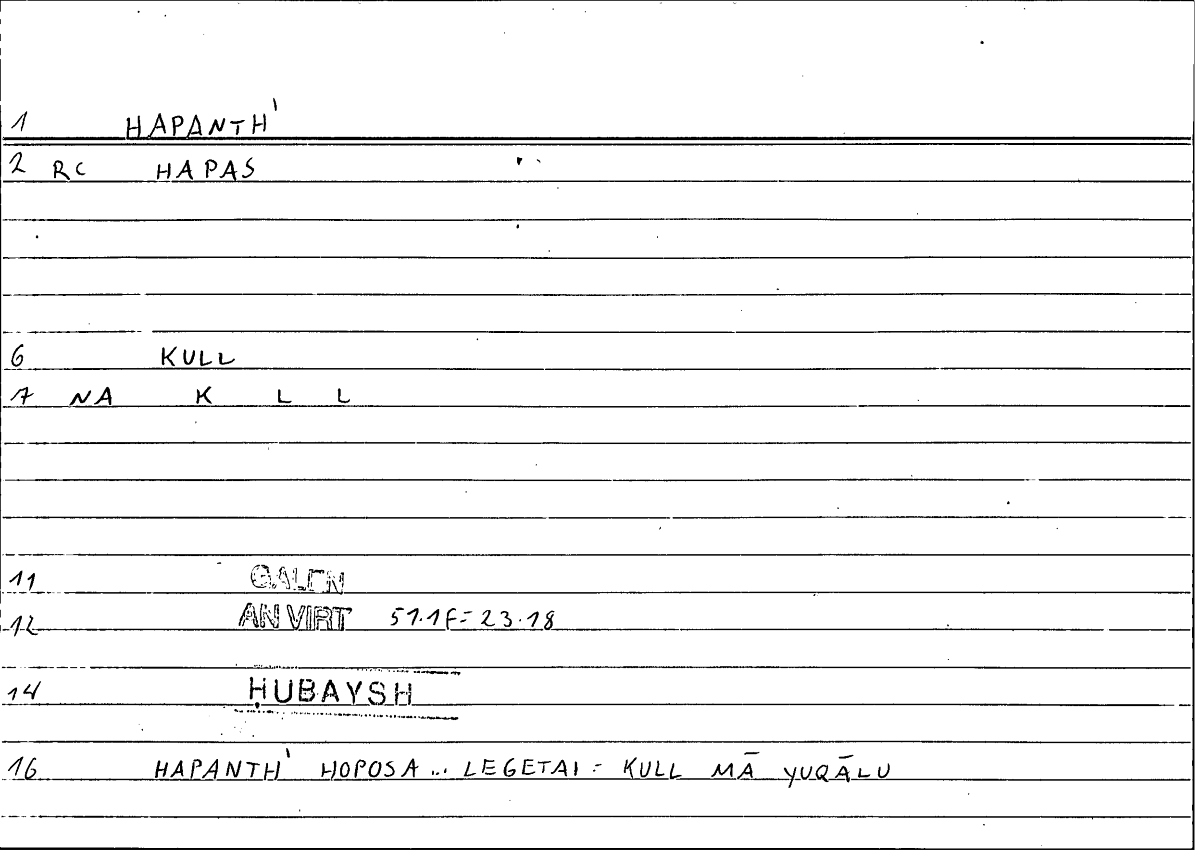 1 HAPANTH'
2 RC HAPAS
6 KULL
7 NA K L L
11 GALEN
12 AN VIRT 51.1f = 23.18
14 ḤUBAYSH
16 HAPANTH' HOPOSA ... LEGETAI = KULL MĀ YUQĀLU